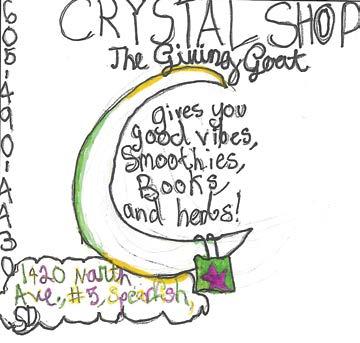 CRYSTAL SHOP
The Giving Goat
605-490-4430
gives you
good vibes,
Smoothies,
Books,
and herbs!
1420 North
Ave., #5, Spearfish,
SD